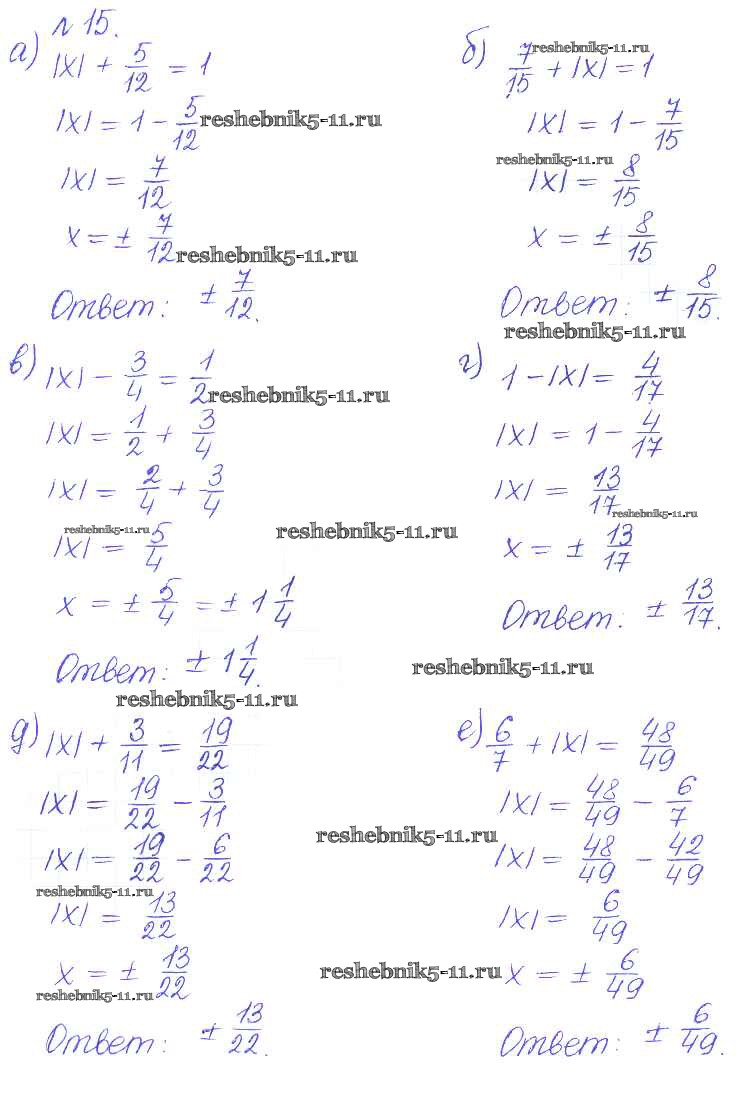 № 15.
а) |x| + 5/12 = 1
|x| = 1 - 5/12 reshebnik5-11.ru
|x| = 7/12
x = ± 7/12 reshebnik5-11.ru
Ответ: ± 7/12.
б) 7/15 + |x| = 1 reshebnik5-11.ru
|x| = 1 - 7/15
reshebnik5-11.ru
|x| = 8/15
x = ± 8/15
Ответ: ± 8/15.
reshebnik5-11.ru
в) |x| - 3/4 = 1/2 reshebnik5-11.ru
|x| = 1/2 + 3/4
|x| = 2/4 + 3/4
reshebnik5-11.ru
|x| = 5/4 reshebnik5-11.ru
x = ± 5/4 = ± 1 1/4
Ответ: ± 1 1/4.
reshebnik5-11.ru
г) 1 - |x| = 4/17
|x| = 1 - 4/17
|x| = 13/17 reshebnik5-11.ru
x = ± 13/17
Ответ: ± 13/17.
reshebnik5-11.ru
д) |x| + 3/11 = 19/22
|x| = 19/22 - 3/11
|x| = 19/22 - 6/22
reshebnik5-11.ru
|x| = 13/22
x = ± 13/22
reshebnik5-11.ru
Ответ: ± 13/22.
е) 6/7 + |x| = 48/49
|x| = 48/49 - 6/7
reshebnik5-11.ru
|x| = 48/49 - 42/49
|x| = 6/49
reshebnik5-11.ru x = ± 6/49
Ответ: ± 6/49.